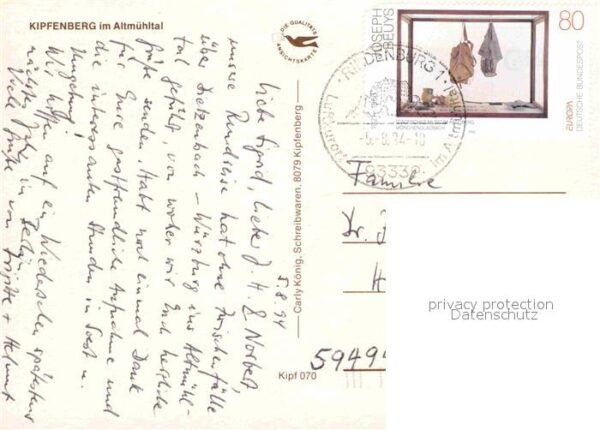 KIPFENBERG im Altmühltal
DIE QUALITÄTS
ANSICHTSKARTE
5.8.94
Liebe Sigrid, lieber J. H. & Norbert,
unsere Rundreise hat ohne Zwischenfälle
über Dietzenbach – Würzburg ins Altmühl-
tal geführt, von woher wir Euch herzliche
Grüße senden. Habt noch einmal Dank
für Eure gastfreundliche Aufnahme und
die interessanten Stunden in Soest u.
Umgebung!
Wir hoffen auf ein Wiedersehen spätestens
nächstes Jahr in Berlin.
Viele Grüße von Brigitte + Helmut
Carly König, Schreibwaren, 8079 Kipfenberg
Kipf 070
JOSEPH
BEUYS
80
EUROPA
DEUTSCHE BUNDESPOST
MÖNCHENGLADBACH
RIEDENBURG 1
Luftkurort
im Altmühltal
93339
Familie
Dr.
H
59494
privacy protection
Datenschutz